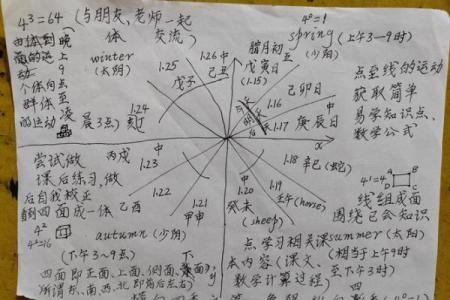 4³=64 (与朋友、老师一起
体 交流)
由体到
面的运
动
个体向
群体
的运动
晚上9点至凌晨3点)
winter
(太阴)
1.26 中
己丑
1.25
戊子
1.24
腊月初
戊寅日
(1.15)
4°=1
spring (上午3一9时)
(少阳)
1.16 己卯日
1.17 庚辰日
中
点至线的运动
获取简单
易学知识点、
数学公式
x
尝试做
课后练习,做
后自我校正
四面成一体
4²
4²=16
丙戌 中
1.23
1.22
己酉
1.21
甲申
autumn (少阴)
(下午3~9点)
中
1.20
癸未
(sheep)
1.19
壬午(horse)
1.18 辛巳(蛇)
4¹=4
线组成面
围绕已会知识
点、学习相关课
本内容(课文、
数学计算过程)
summer (太阳)
(相当于上午9时
至下午3时)
四面即正面、上面、侧面
所谓东、南、西、北即前后左右